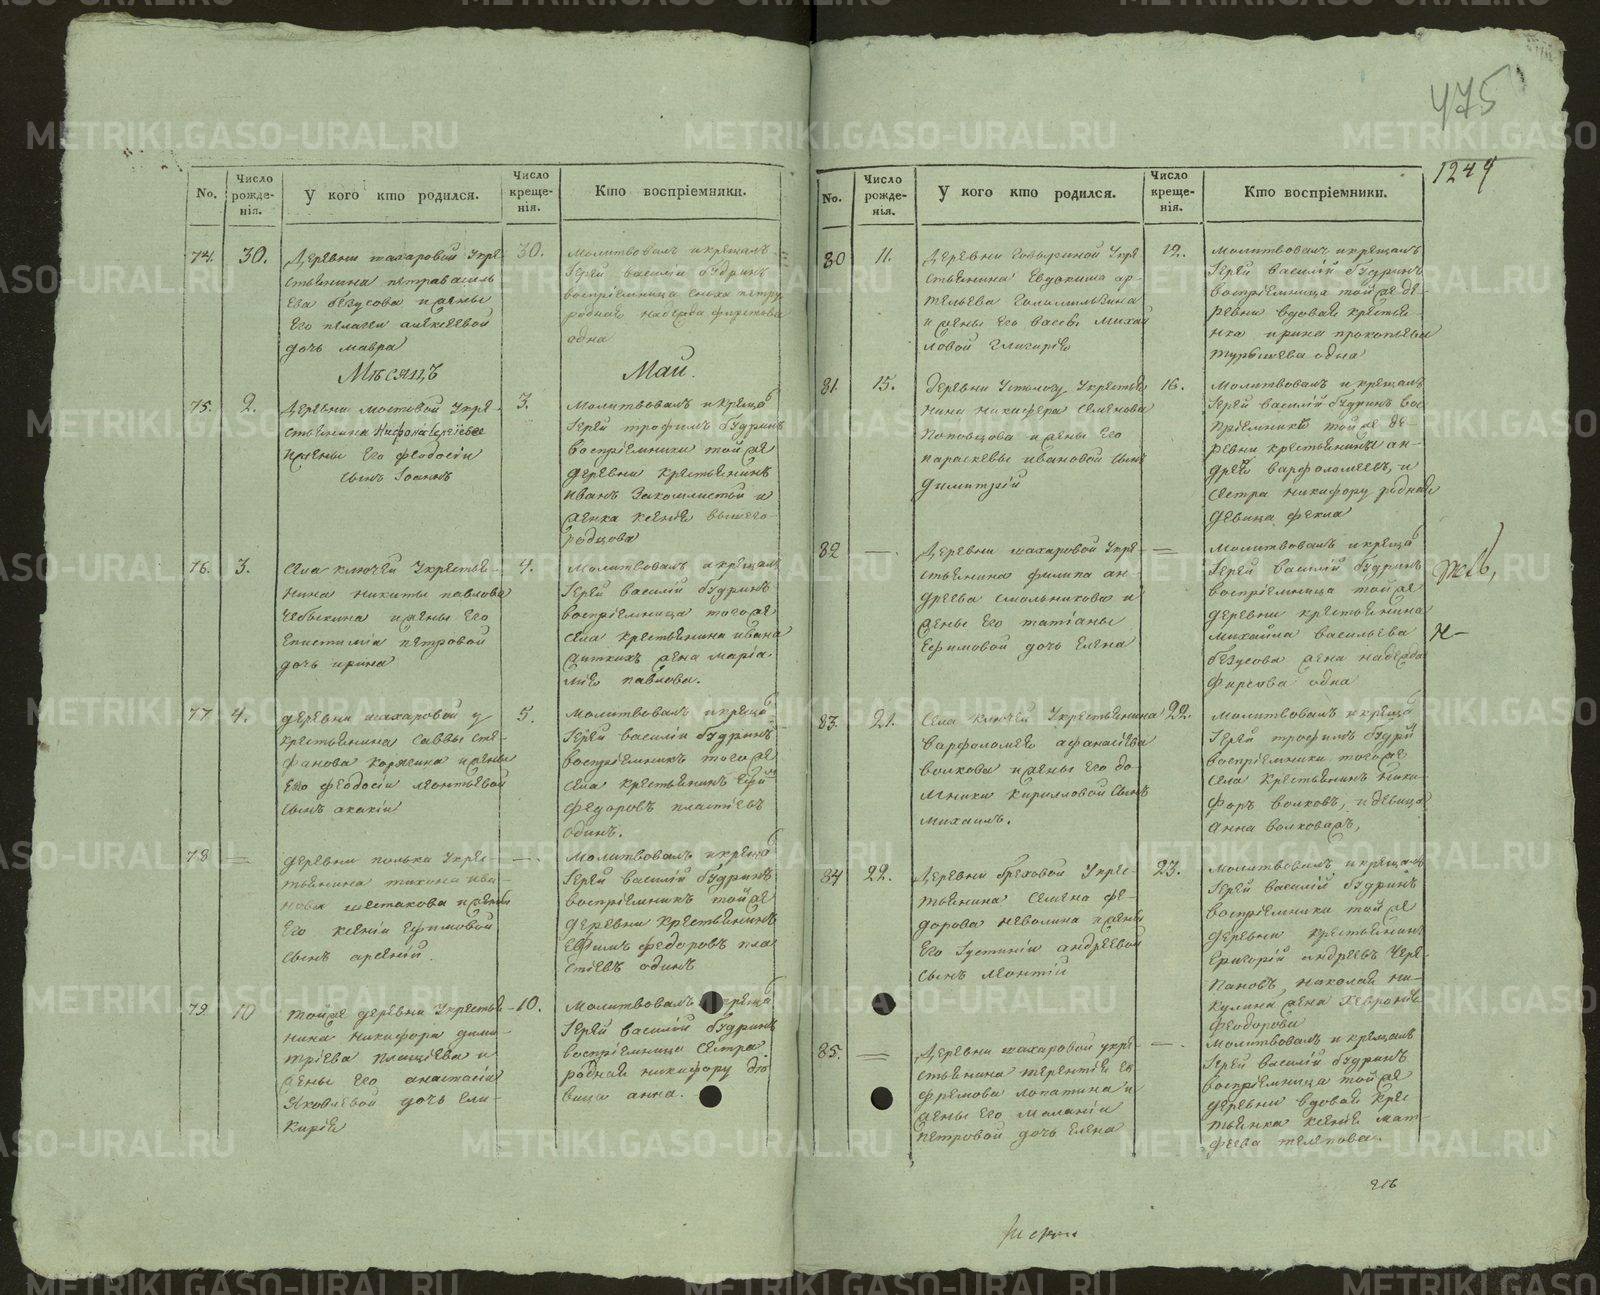 475
1249
No.
Число рожде-нія.
У кого кто родился.
Число креще-нія.
Кто воспріемники.
74.
30.
Деревни махаровой Укре
стьянина петра василь
ева бѣзусова и жены
Его пелагеи алексеевой
дочь мавра
30.
молитвовалъ и крещалъ
Іерей василій будринъ
воспріемница сноха петру
родная надежда фирстова
одна
Мѣсяцъ
Май.
75.
2.
Деревни мостовой Укре-
стьянина
и жены Его феодосіи
сынъ Іоаннъ
3.
молитвовалъ и креща
Іерей трофимъ будринъ
воспріемники той же
деревни крестьянинъ
иванъ и
женка ксенія вышего-
родцова
76.
3.
села ключей Укрестья-
нина никиты павлова
чебыкина и жены Его
Епистиміи петровой
дочь ирина
4.
молитвовалъ и крещалъ
Іерей василій будринъ
воспріемница того же
села крестьянина ивана
жена марія
павлова.
77
4.
деревни махаровой у
крестьянина саввы сте-
фанова корягина и жены
Его феодосіи леонтьевой
сынъ акакій
5.
молитвовалъ и креща
Іерей василій будринъ
воспріемникъ того же
села крестьянинъ Ефи
федоровъ пластѣевъ
одинъ.
78
=
деревни полька Укрес-
тьянина тихона ива-
нова шестакова и жены
Его ксеніи Ефимовой
сынъ арсеній.
—.
молитвовалъ и креща
Іерей василій будринъ
воспріемникъ той же
деревни крестьянинъ
Ефимъ федоровъ пла
стѣевъ одинъ
79
10
тойже деревни Укрестья-
нина никифора дими-
тріева и
жены Его анастасіи
Яковлевой дочь гли-
керія
10.
молитвовалъ креща
Іерей василій будринъ
воспріемница сестра
родная никифору дѣ
вица анна.
No.
Число рожде-нія.
У кого кто родился.
Число креще-нія.
Кто воспріемники.
80
11.
Деревни Говыриной Укре
стьянина Евдокима ар-
темьева
и жены Его вассы михай
ловой гликерія
12.
молитвовалъ и крещалъ
Іерей василій будринъ
воспріемница той же де-
ревни вдовая крестья-
нка ирина прокопьева
одна
81
15.
деревни Усталогу Укрестья
нина никифера семенова
поповцова и жены Его
параскевы ивановой сынъ
димитрій
16.
молитвовалъ и крещалъ
Іерей василій будринъ вос
пріемники той же де-
ревни крестьянинъ ан-
дрей варфоломеевъ, и
сестра никифору родная
девица фекла
82
—
Деревни махаровой Укре-
стьянина филипа ан-
дреева смольникова и
жены Его татіаны
Ефимовой дочь Елена
=
молитвовалъ и креща
Іерей василій будринъ
воспріемница той же
деревни крестьянина
михаила васильева
бѣзусова жена надежда
фирсова одна
83.
21.
села ключей Укрестьянина
варфоломея афанасіева
волкова и жены Его до-
мники кирилловой сынъ
михаилъ.
22.
молитвовалъ и креща
Іерей трофимъ будри
воспріемники того же
села крестьянинъ ники-
форъ волковъ, и девица
анна волкова,
84
22.
Деревни бреховой Укрес-
тьянина семена фе-
дорова неволина и жены
Его Іустиніи андреевой
сынъ леонтій
23.
молитвовалъ и крещалъ
Іерей василій будринъ
воспріемники той же
деревни крестьянинъ
григорій андреевъ чере-
пановъ, николая ни-
кулина жена хевронья
феодорова
85.
=
Деревни махаровой укре-
стьянина терентія Еѳ
фремова лопатина и
жены Его маланіи
петровой дочь Елена
—.
молитвовалъ и крещалъ
Іерей василій будринъ
воспріемница той же
деревни вдовая крес
тьянка ксенія мат-
феева телепова.
METRIKI.GASO-URAL.RU